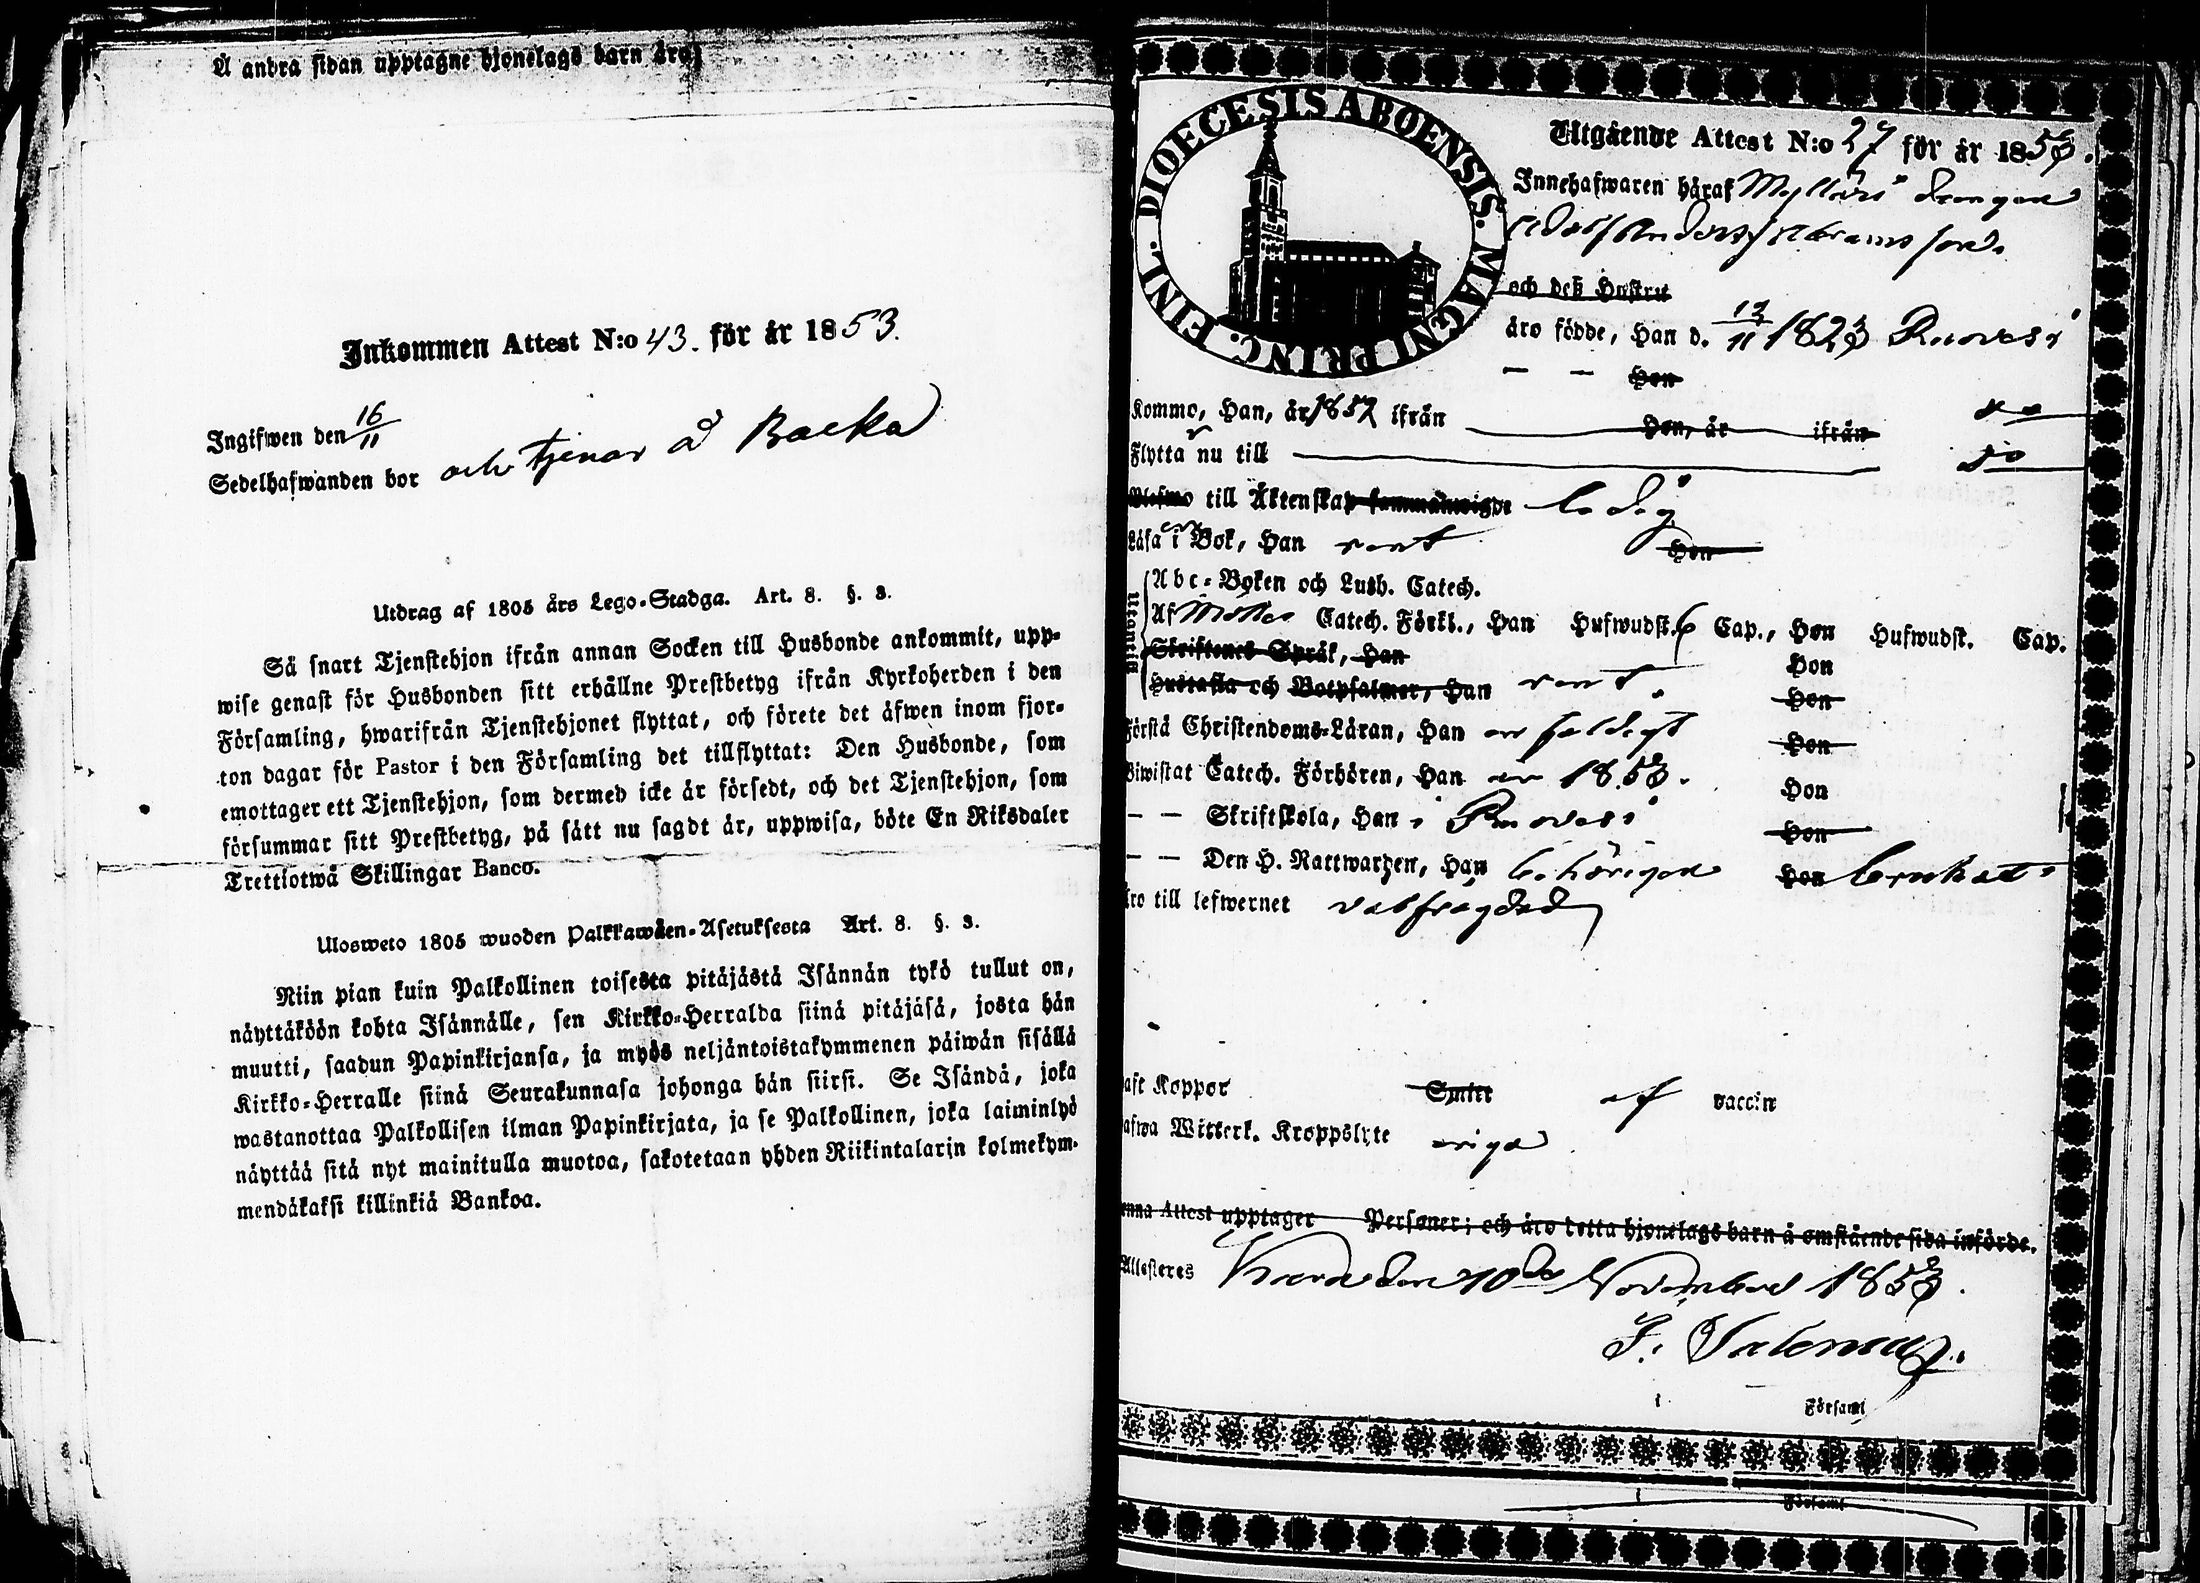 Å andra sidan upptagne hjonelags barn äro;
Inkommen Attest N:o 43. för år 1853.
Ingifwen den 16/11
Sedelhafwanden bor och tjenar å Backa
Utdrag af 1805 års Lego-Stadga. Art. 8. §. 3.
Så snart Tjenstehjon ifrån annan Socken till Husbonde ankommit, upp-
wise genast för Husbonden sitt erhållne Prestbetyg ifrån Kyrkoherden i den
Församling, hwarifrån Tjenstehjonet flyttat, och förete det äfwen inom fjor-
ton dagar för Pastor i den Församling det tillflyttat: Den Husbonde, som
emottager ett Tjenstehjon, som dermed icke är försedt, och det Tjenstehjon, som
försummar sitt Prestbetyg, på sätt nu sagdt är, uppwisa, böte En Riksdaler
Trettiotwå Skillingar Banco.
Ulosweto 1805 wuoden Palkkawäen-Asetuksesta Art. 8. §. 3.
Niin pian kuin Palkollinen toisesta pitäjästä Isännän tykö tullut on,
näyttäköön kohta Isännälle, sen Kirkko-Herralda siinä pitäjäsä, josta hän
muutti, saadun Papinkirjansa, ja myös neljäntoistakymmenen päiwän sisällä
Kirkko-Herralle siinä Seurakunnasa johonga hän siirsi. Se Isändä, joka
wastanottaa Palkollisen ilman Papinkirjata, ja se Palkollinen, joka laiminlyö
näyttää sitä nyt mainitulla muotoa, sakotetaan yhden Riikintalarin kolmekym-
mendäkaksi killinkiä Bankoa.
DIOECESIS ABOENSIS. MAGNI PRINC. FINL.
Utgående Attest N:o 27 för år 1853.
Innehafwaren häraf Mylläri drengen
Adolf Anders Abramsson
och deß Hustru
äro födde, Han d. 13/11 1823 Ruovesi
— — Hon
Kommo, Han, år 1852 ifrån Hon, år ifrån
Flytta nu till
till Äktenskap ledig
Läsa i Bok, Han rent Hon
Utantill
Abc-Boken och Luth. Catech.
Af Möllers Catech. Förkl., Han Hufwudst. 6 Cap., Hon Hufwudst. Cap.
Skriftenes Språk, Han Hon
Hustafla och Botpsalmer, Han rent. Hon
Förstå Christendoms-Läran, Han enfaldigt Hon
Biwistat Catech. Förhören, Han än 1853. Hon
— — Skriftskola, Han i Ruovesi Hon
— — Den H. Nattwarden, Han behörigen Hon brukat.
äro till lefwernet välfrägdad
haft Koppor af vaccin
hafwa Witterk. Kroppslyte
enna Attest upptager Personer; och äro detta hjonelags barn å omstående sida införde.
Attesteras den 10de November 1853.
i Församl.
i Församl.